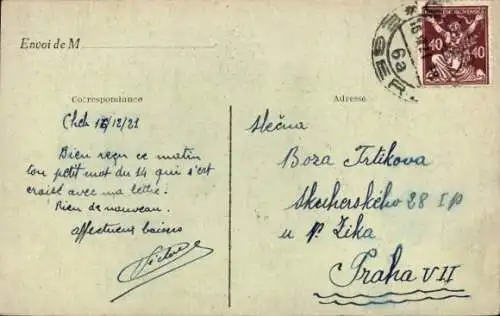 Envoi de M
Correspondance
Adresse
Cheb 16/12/21
Bien reçu ce matin
ton petit mot du 14 qui s'est
croisé avec ma lettre.
Rien de nouveau.
affectueux baisers
Victor
slečna
Boza Trtikova
Skuherského 28 I p
u p. Zika
Praha VII
40 40
EGER
6a